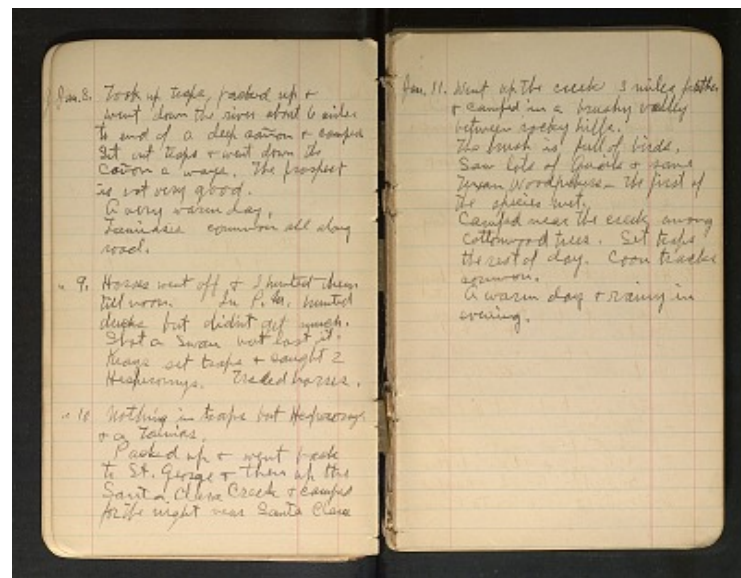 Jan. 8. Took up traps, packed up +
went down the river about 6 miles
to end of a deep cañon + camped
Set out traps + went down the
Cañon a ways. The prospect
is not very good.
A very warm day.
Tamias common all along
road.
" 9. Horses went off + I hunted them
till noon. In P.M. hunted
ducks but didn't get much.
Shot a Swan but lost it.
set traps + caught 2
Hesperomys. Traded horses.
" 10 Nothing in traps but Hesperomys
+ a Tamias.
Packed up + went back
to St. George + then up the
Santa Clara Creek + camped
for the night near Santa Clara
Jan. 11. Went up the creek 3 miles farther
+ camped in a brushy valley
between rocky hills.
The brush is full of birds.
Saw lots of Quails + some
Texan Woodpeckers - the first of
the species met.
Camped near the creek among
Cottonwood trees. Set traps
the rest of day. Coon tracks
common.
A warm day + rainy in
evening.